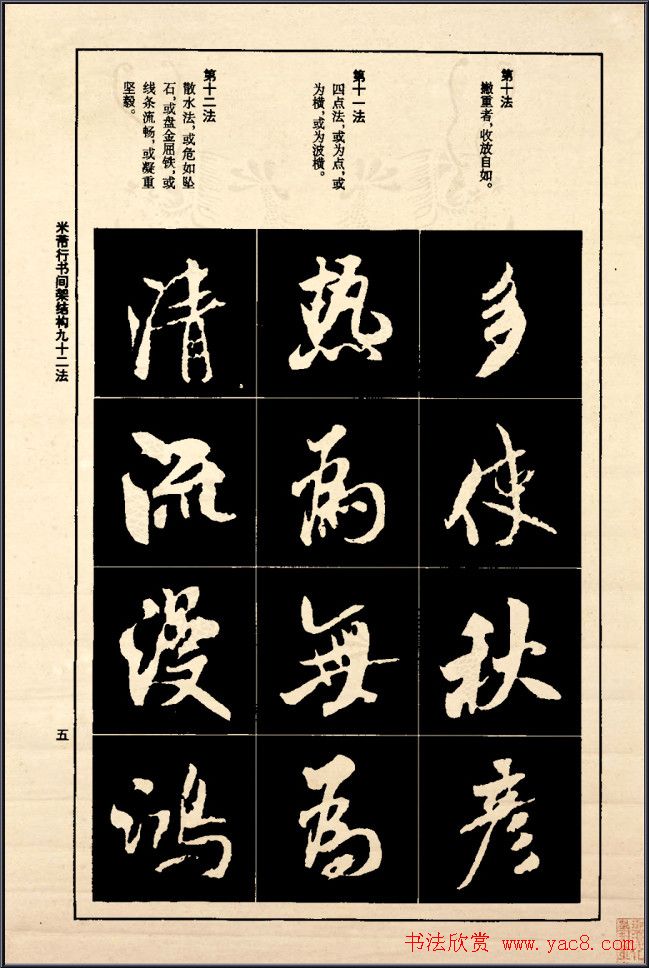 第十法
撇重者，收放自如。
多
使
秋
彦
第十一法
四点法，或为点，或
为横，或为波横。
热
為
無
為
第十二法
散水法，或危如坠
石，或盘金屈铁，或
线条流畅，或凝重
坚毅。
清
流
漫
鸿
米芾行书间架结构九十二法
五
书法欣赏 www.yac8.com